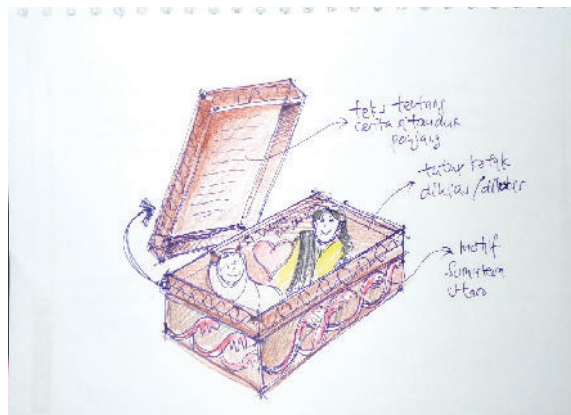 teks tentang
cerita si tanduk
panjang
tutup kotak
dihias/diukir
motif
Sumatera
Utara